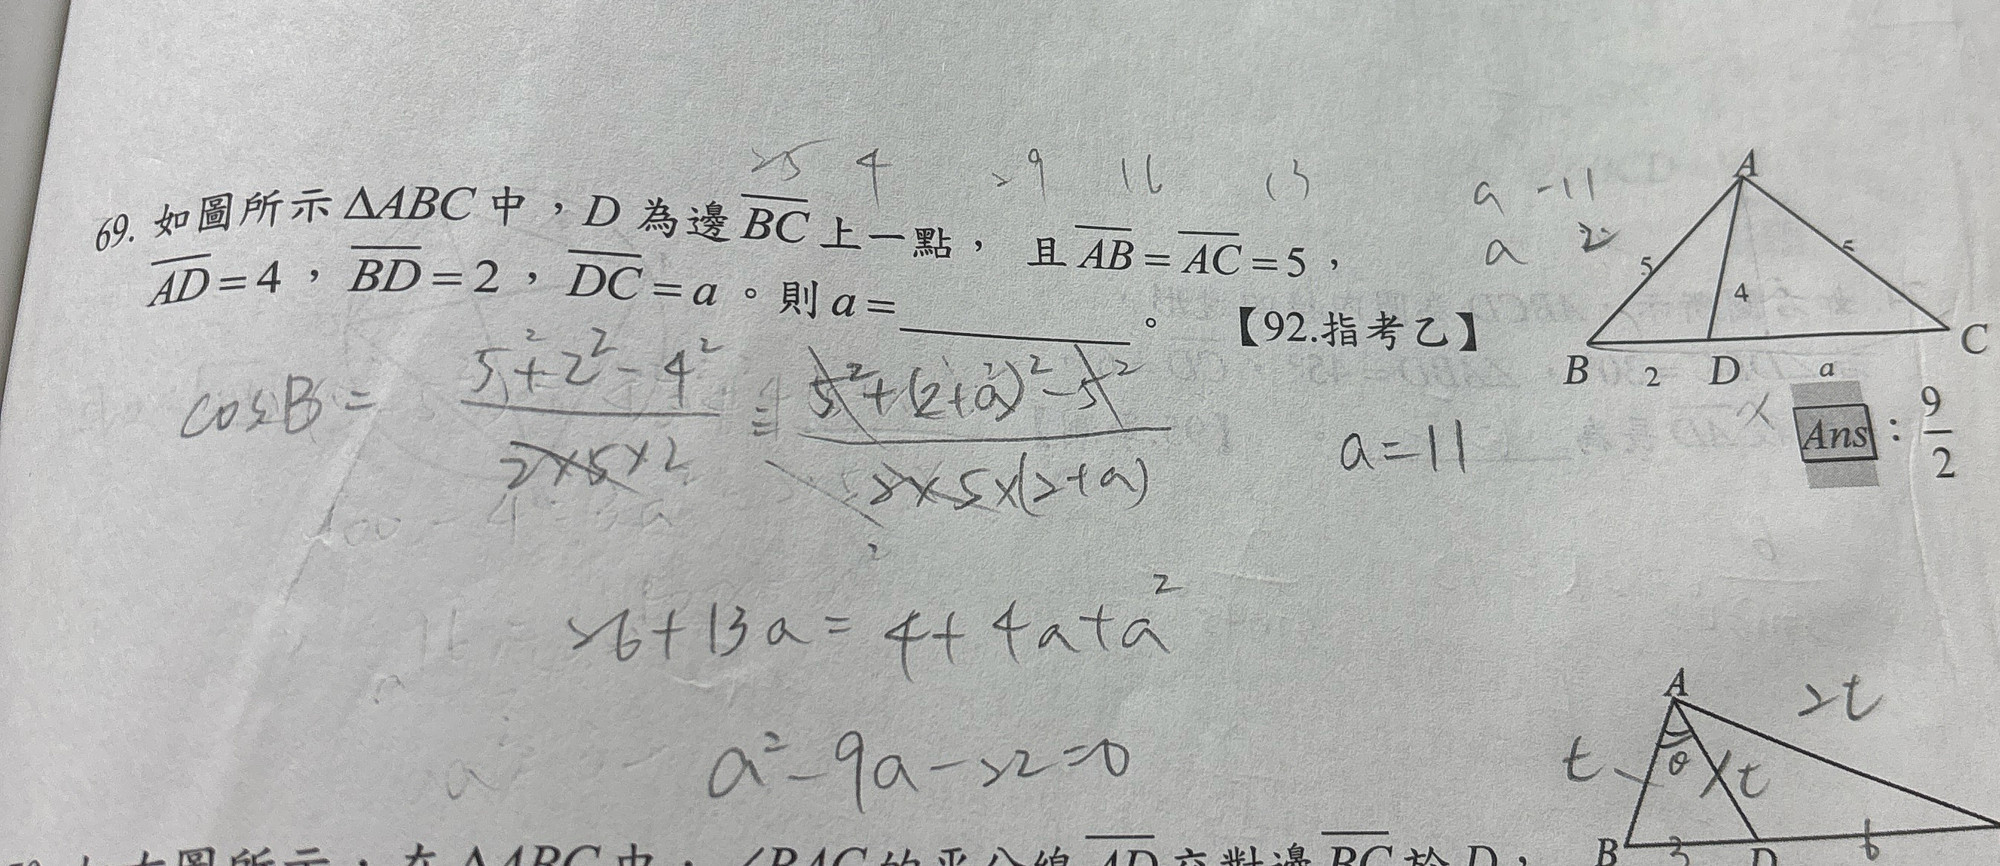 25 4 29 16 13
a -11
a 2
69. 如圖所示 ΔABC 中，D 為邊 BC 上一點， 且 AB = AC = 5，
AD = 4， BD = 2， DC = a。則 a = ______。 【92.指考乙】
A
5
5
4
B 2 D a C
Ans : 9/2
cosB = (5²+2²-4²)/(2×5×2) = (5²+(2+a)²-5²)/(2×5×(2+a))
a=11
26+13a = 4+4a+a²
a²-9a-22=0
A
2t
t θ t
B 3 D 6
如右圖所示，在 ΔABC 中，∠BAC 的平分線 AD 交對邊 BC 於 D，